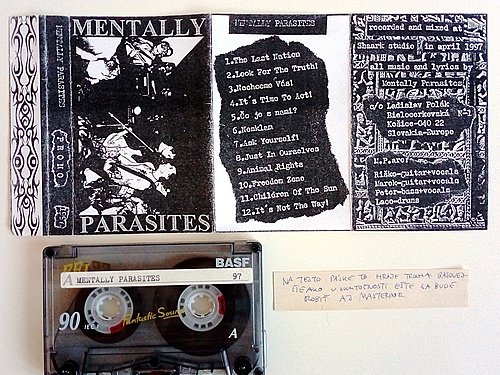 MENTALLY PARASITES
PROMO
MENTALLY
PARASITES
MENTALLY PARASITES
1.The Last Nation
2.Look For The Truth!
3.Nechceme Vás!
4.It's Time To Act!
5.Čo je s nami?
6.Nesklam
7.Ask Yourself!
8.Just In Ourselves
9.Animal Rights
10.Freedom Zone
11.Children Of The Sun
12.It's Not The Way!
recorded and mixed at
Shaark studio in april 1997
all music and lyrics by
Mentally Parasites
c/o Ladislav Polák
Bielocerkovská N-1
Košice-040 22
Slovakia-Europe
M.P.are:
Riško-guitar+vocals
Marek-guitar+vocals
Peter-bass+vocals
Laco-drums
BASF
A MENTALLY PARASITES 97
90 IEC I
Fantastic Sound
A
NA TEJTO PÁSKE TO HRAJE TROCHA
AKO V SKUTOČNOSTI. EŠTE SA BUDE
ROBIŤ AJ MASTERING